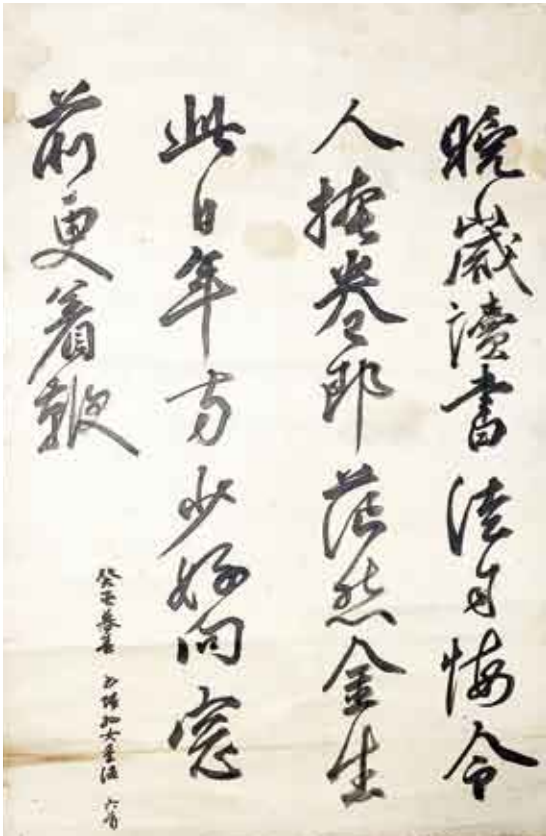 晚歲讀書徒自悔令
人掩卷即茫然金生
此日年方少好向窓
前更着鞭
癸 暮春